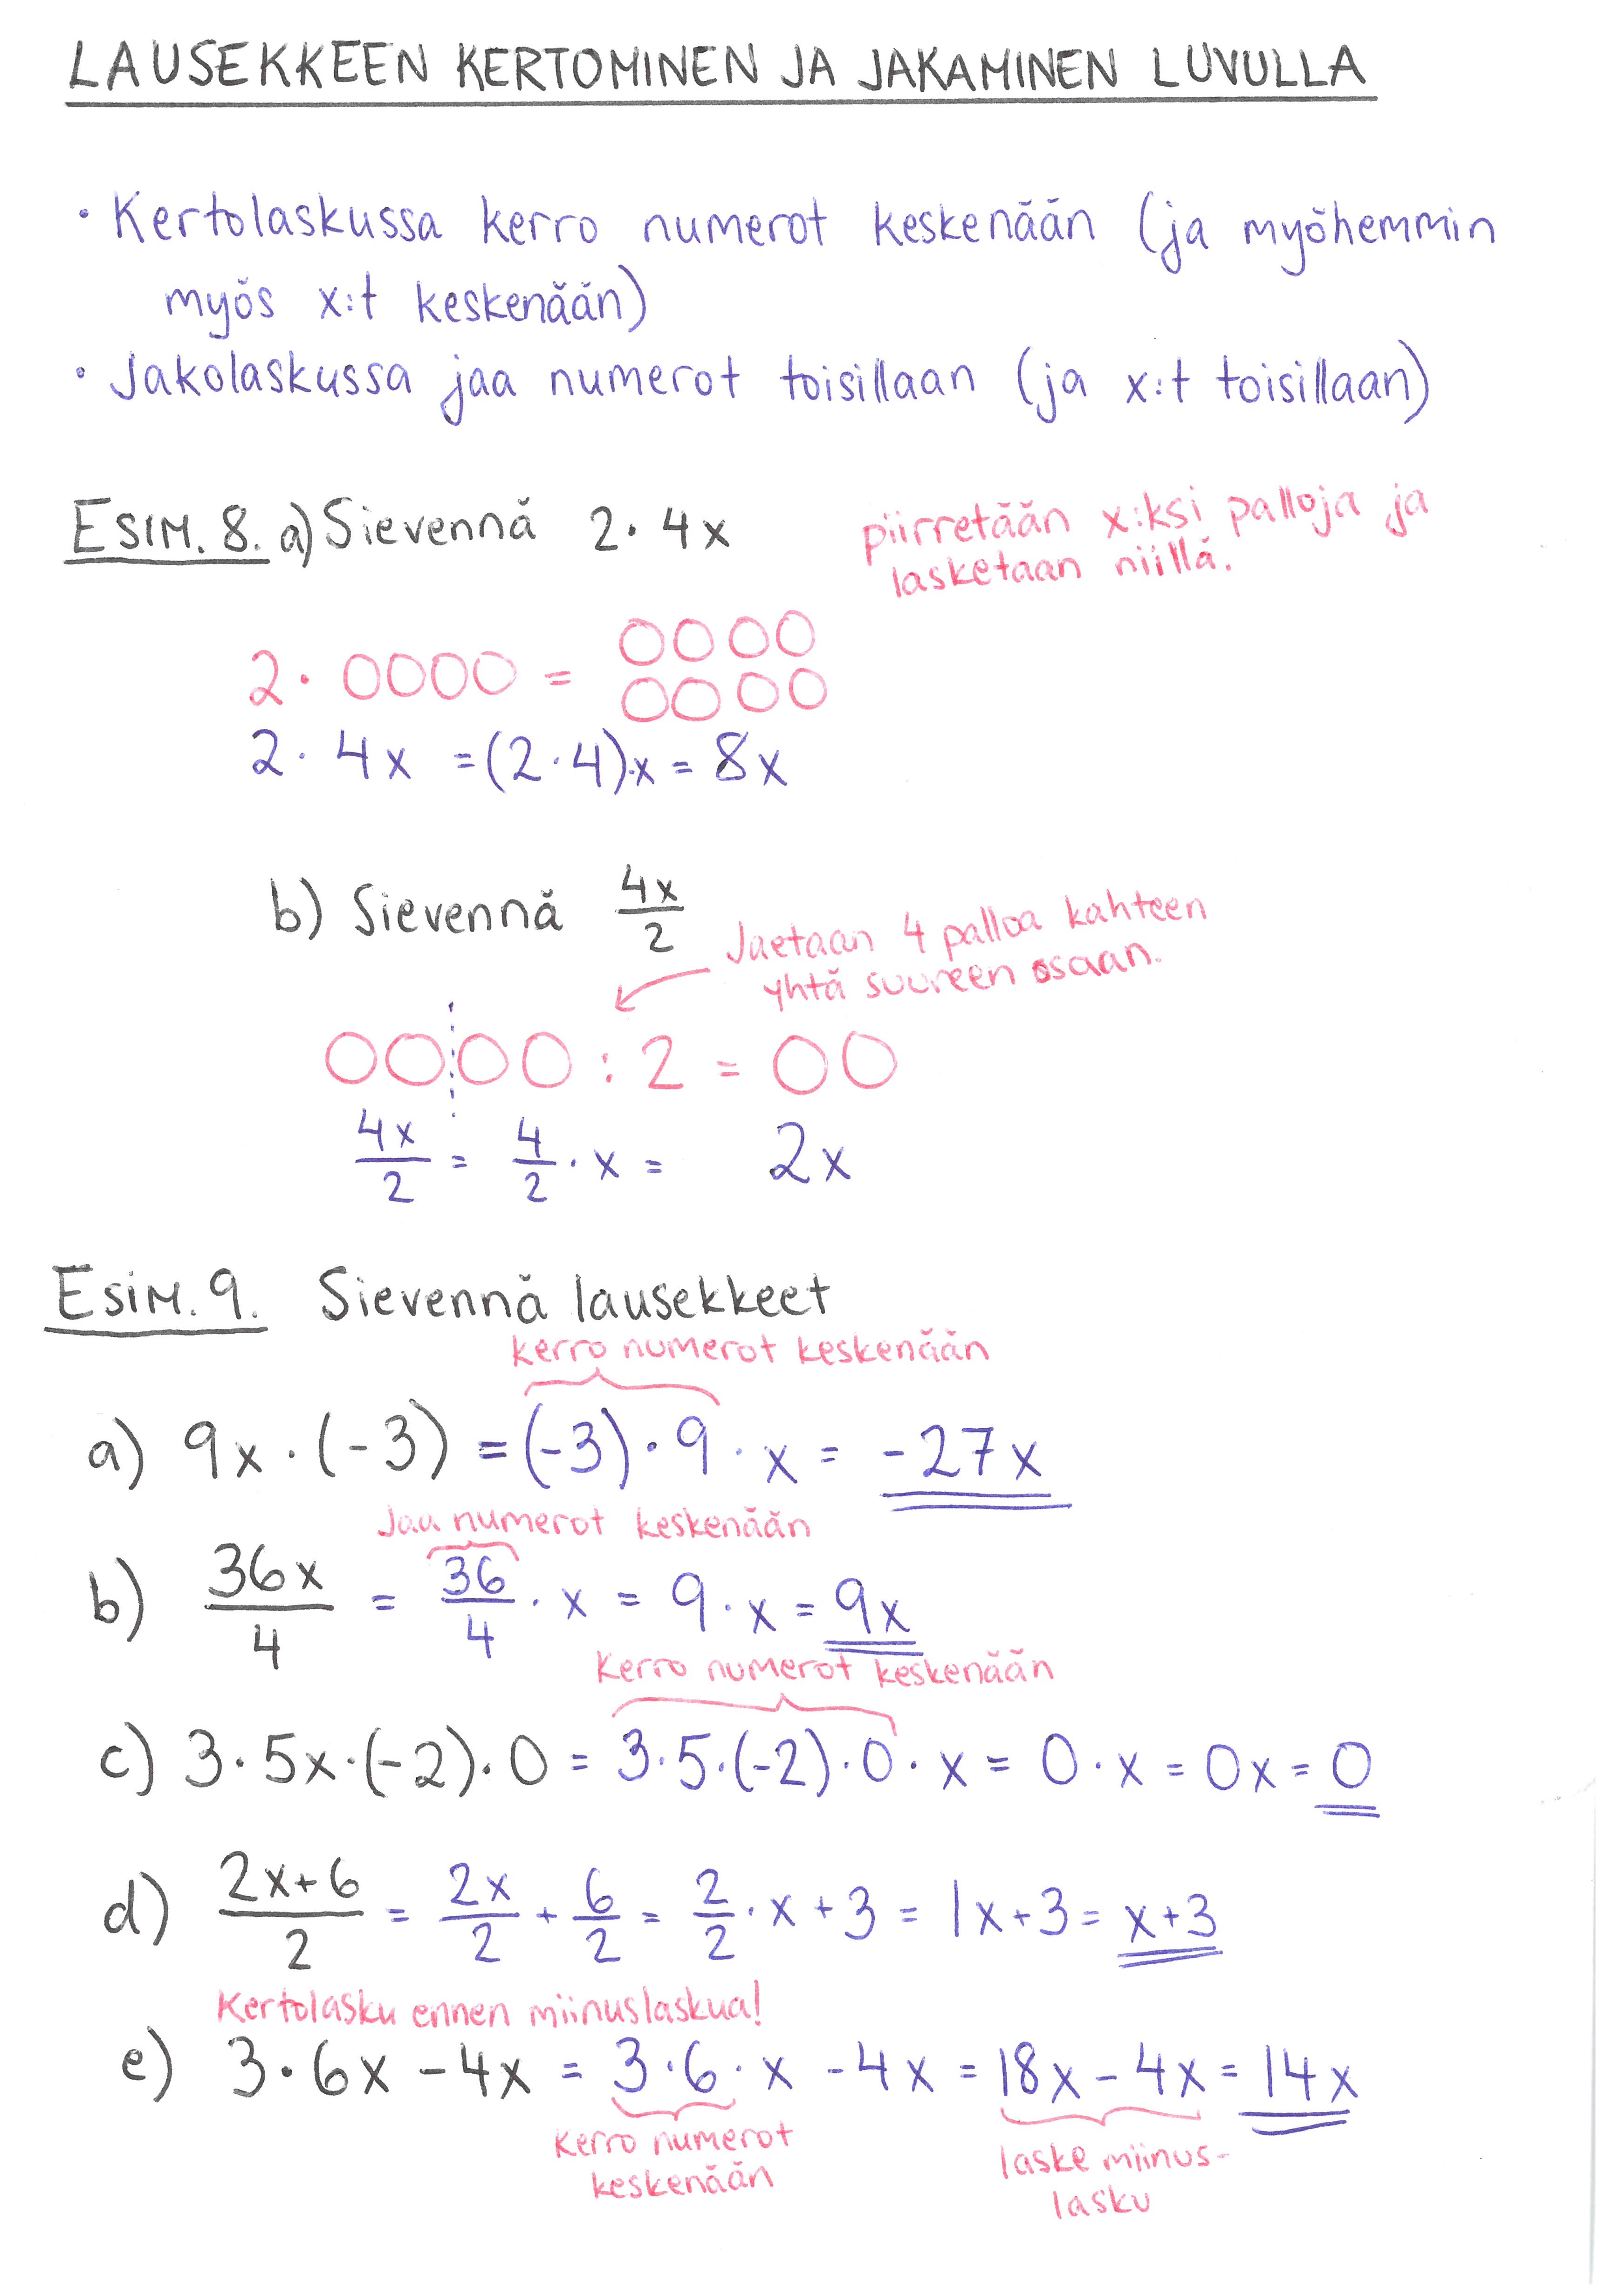 LAUSEKKEEN KERTOMINEN JA JAKAMINEN LUVULLA
• Kertolaskussa kerro numerot keskenään (ja myöhemmin
myös x:t keskenään)
• Jakolaskussa jaa numerot toisillaan (ja x:t toisillaan)
ESIM. 8. a) Sievennä 2 · 4x
piirretään x:ksi palloja ja
lasketaan niillä.
2 · OOOO = OOOO
OOOO
2 · 4x = (2 · 4)·x = 8x
b) Sievennä 4x/2
Jaetaan 4 palloa kahteen
yhtä suureen osaan.
OOOO : 2 = OO
4x/2 = 4/2 · x = 2x
ESIM. 9. Sievennä lausekkeet
kerro numerot keskenään
a) 9x · (-3) = (-3) · 9 · x = -27x
Jaa numerot keskenään
b) 36x/4 = 36/4 · x = 9 · x = 9x
Kerro numerot keskenään
c) 3 · 5x · (-2) · 0 = 3 · 5 · (-2) · 0 · x = 0 · x = 0x = 0
d) (2x+6)/2 = 2x/2 + 6/2 = 2/2 · x + 3 = 1x + 3 = x + 3
Kertolasku ennen miinuslaskua!
e) 3 · 6x - 4x = 3 · 6 · x - 4x = 18x - 4x = 14x
Kerro numerot
keskenään
laske miinus-
lasku